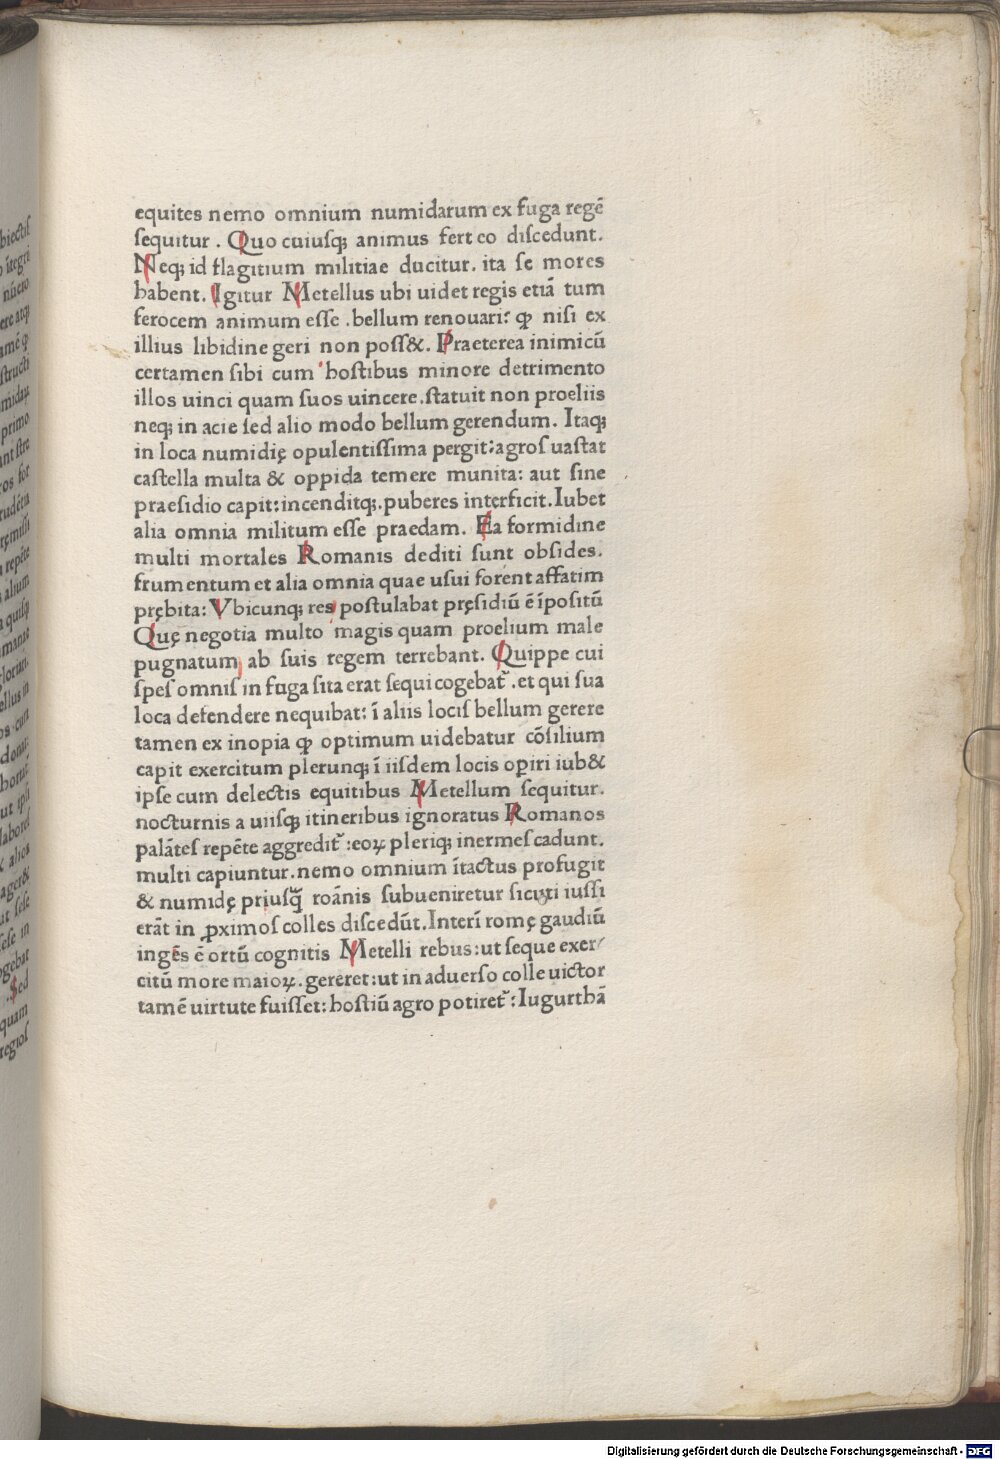 equites nemo omnium numidarum ex fuga regē
ſequitur . Quo cuiuſqꝫ animus fert eo diſcedunt.
Neqꝫ id flagitium militiae ducitur. ita ſe mores
habent. Igitur Metellus ubi uidet regis etiā tum
ferocem animum eſſe .bellum renouari: ꝙ niſi ex
illius libidine geri non poſſ&. Praeterea inimicū
certamen ſibi cum hoſtibus minore detrimento
illos uinci quam ſuos uincere.ſtatuit non proeliis
neqꝫ in acie ſed alio modo bellum gerendum. Itaqꝫ
in loca numidię opulentiſſima pergit:agroſ uaſtat
caſtella multa & oppida temere munita: aut ſine
praeſidio capit:incenditqꝫ.puberes interficit.Iubet
alia omnia militum eſſe praedam. Ea formidine
multi mortales Romanis dediti ſunt obſides.
frumentum et alia omnia quae uſui forent affatim
prębita: Vbicunqꝫ res poſtulabat pręſidiū ē īpoſitū
Quę negotia multo magis quam proelium male
pugnatum ab ſuis regem terrebant. Quippe cui
ſpeſ omniſ in fuga ſita erat ſequi cogebat᷑ .et qui ſua
loca defendere nequibat: ī aliis lociſ bellum gerere
tamen ex inopia ꝙ optimum uidebatur cōſilium
capit exercitum plerunqꝫ ī iiſdem locis opiri iub&
ipſe cum delectis equitibus Metellum ſequitur.
nocturnis a uiiſqꝫ itineribus ignoratus Romanos
palāteſ repēte aggredit᷑ :eoꝝ pleriqꝫ inermeſ cadunt.
multi capiuntur.nemo omnium ītactus profugit
& numidę priuſꝗ̄ roānis ſubueniretur ſicuti iuſſi
erāt in ꝓximoſ colles diſcedūt.Interī romę gaudiū
ingēs ē ortū cognitis Metelli rebus:ut ſeque exer⸗
citū more maioꝝ.gereret:ut in aduerſo colle uictor
tamē uirtute fuiſſet: hoſtiū agro potiret᷑ :Iugurthā
Digitalisierung gefördert durch die Deutsche Forschungsgemeinschaft - DFG